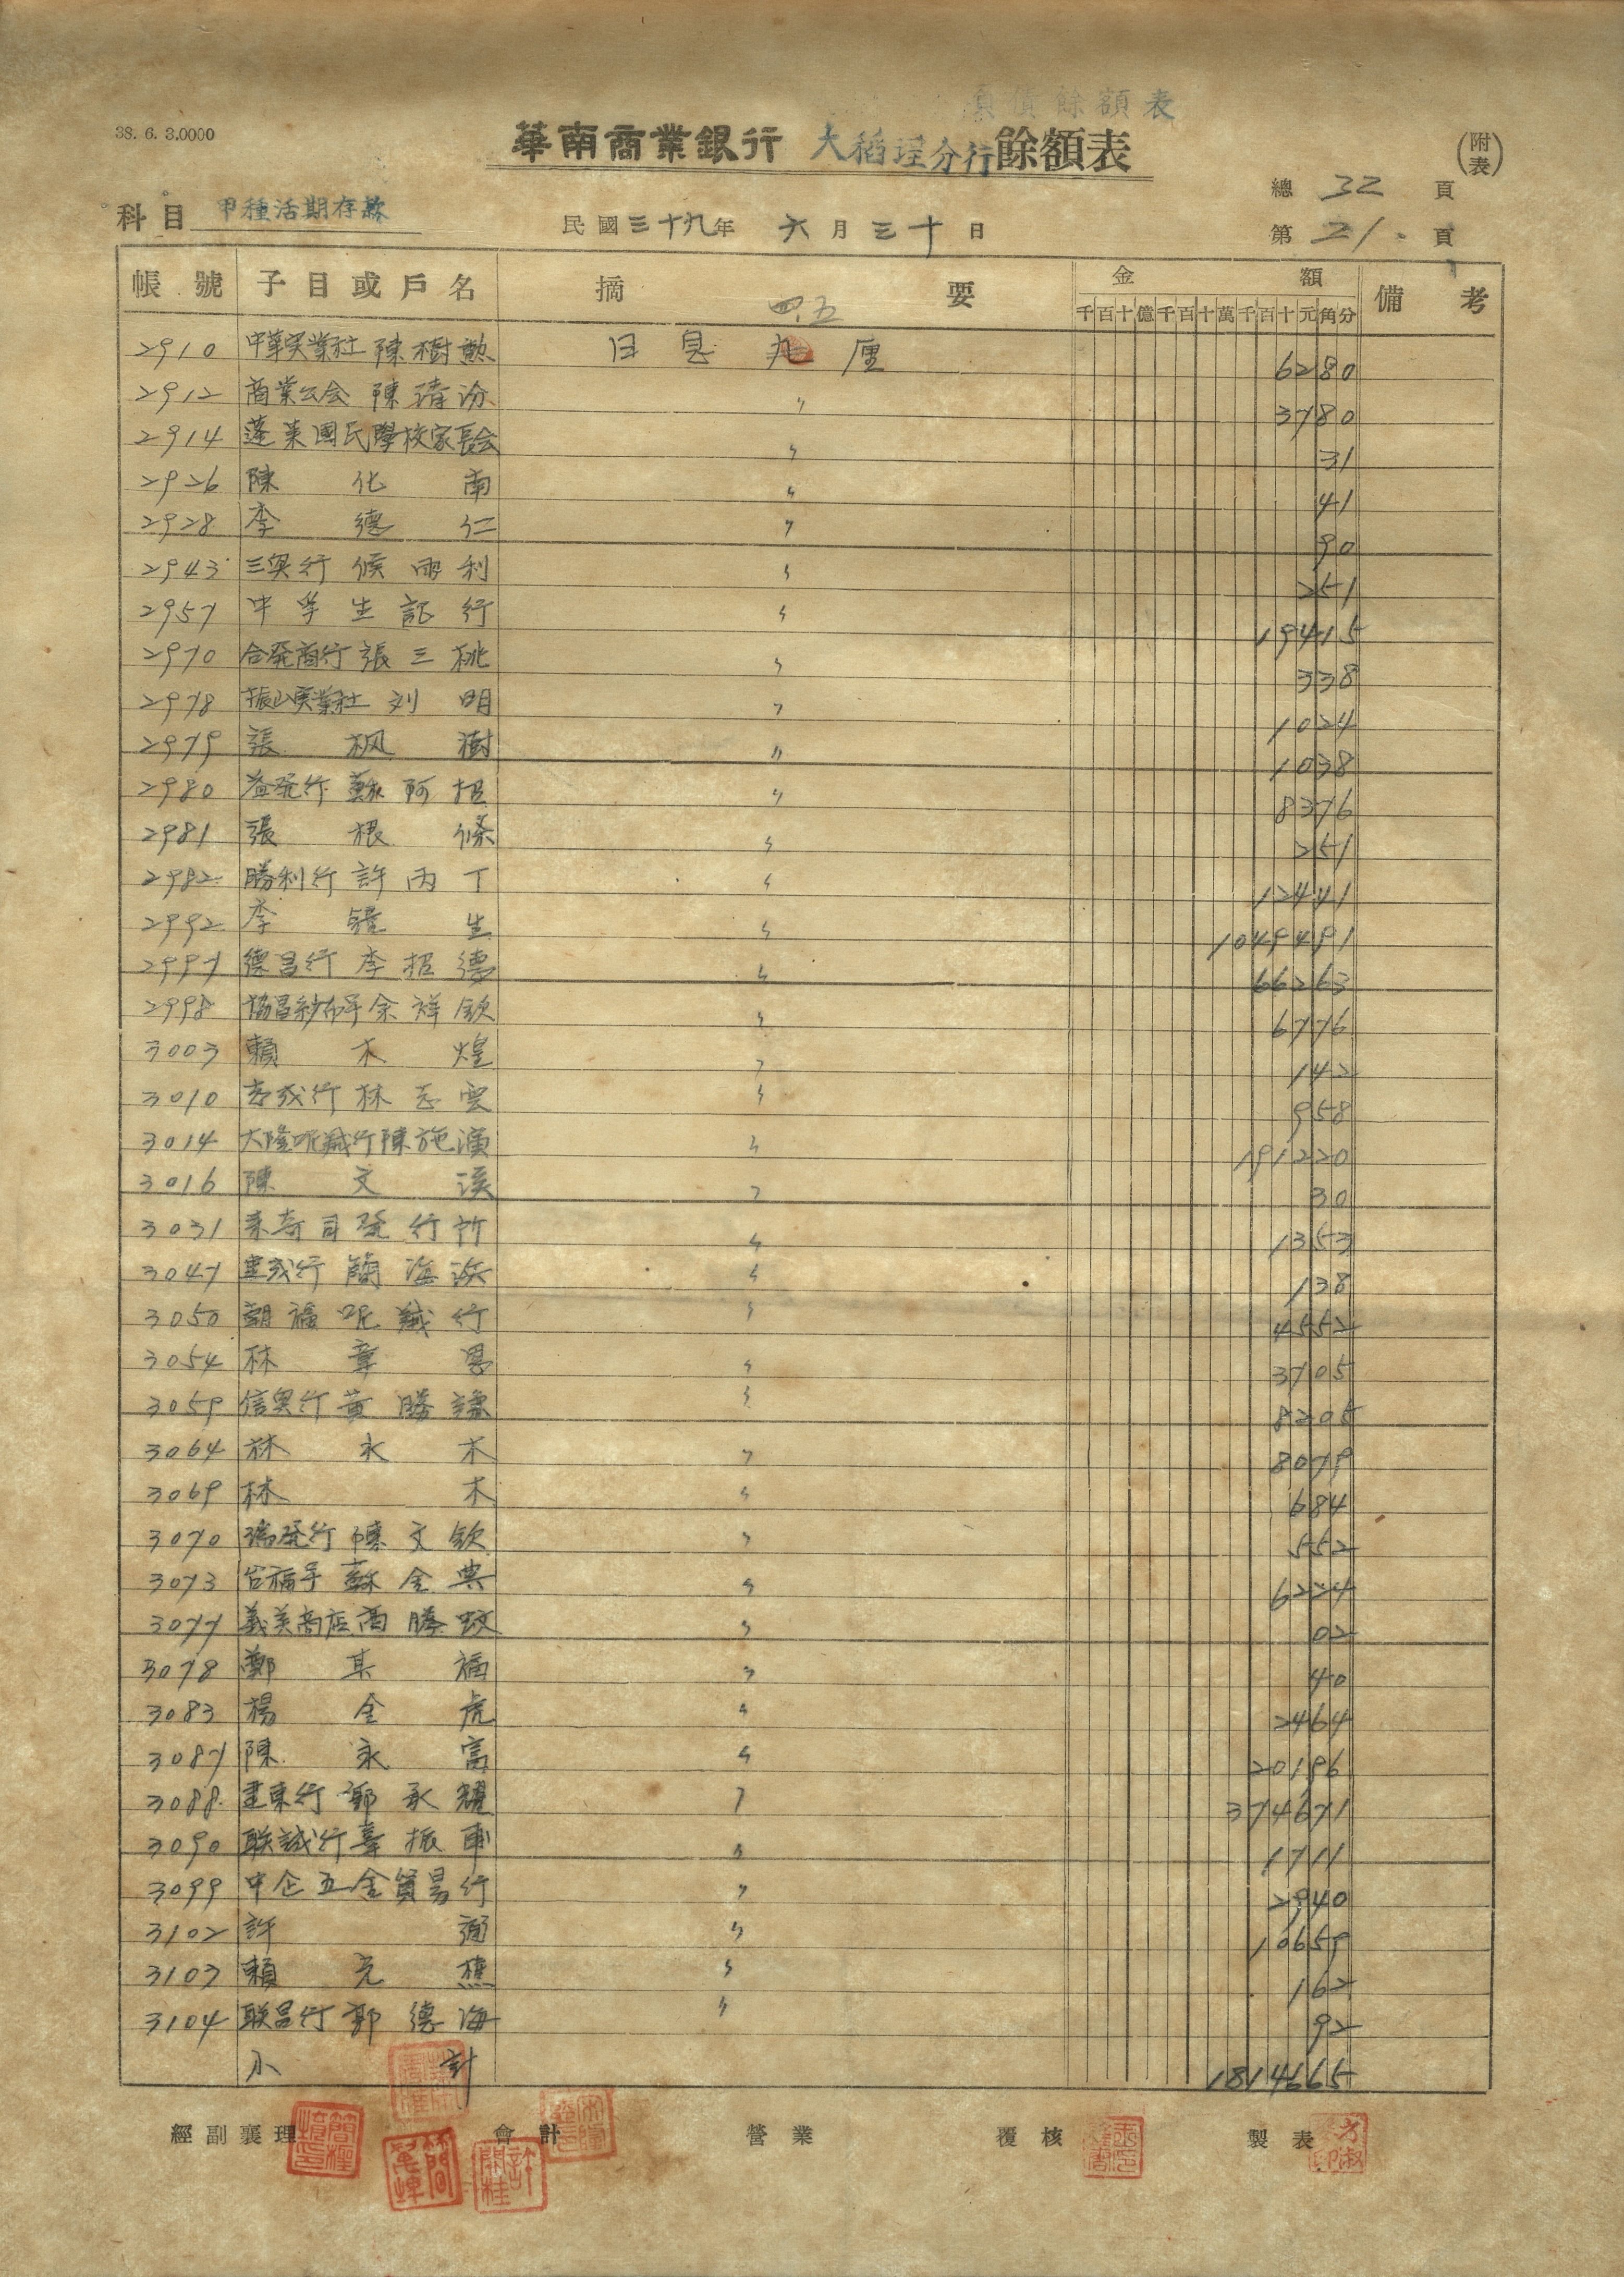 負債餘額表
38. 6. 3.0000
華南商業銀行 大稻埕分行 餘額表
(附表)
總 32 頁
科目 甲種活期存款
民國三十九年 六月三十日
第 21. 頁
帳號 子目或戶名 摘要 金額 備考
千百十億千百十萬千百十元角分
四.五
2910 中華実業社 陳樹 日息 九厘 6280
2912 商業公会 陳清汾 〃 3780
2914 蓬萊國民學校家長会 〃 31
2926 陳化南 〃 41
2928 李德仁 〃 90
2943 三興行 侯雨利 〃 251
2957 中学生記行 〃 19415
2970 合発商行 張三桃 〃 338
2978 振山実業社 刘明 〃 1024
2979 張楓樹 〃 1038
2980 益発行 蘇阿招 〃 8376
2981 張根條 〃 251
2982 勝利行 許丙丁 〃 12441
2992 李鐘生 〃 1049491
2997 德昌行 李招德 〃 66263
2998 協昌紗布 余祥欽 〃 6776
3003 賴木煌 〃 142
3010 志成行 林志雲 〃 958
3014 大隆呢絨行 陳施演 〃 191220
3016 陳文溪 〃 30
3031 司発行所 〃 1353
3047 建成行 簡海 〃 138
3050 朝福呢絨行 〃 4552
3054 林章恩 〃 3705
3059 信興行 黃勝謙 〃 8205
3064 林永木 〃 8079
3069 林木 〃 684
3070 瑞発行 陳文欽 〃 552
3073 台福 蘇金典 〃 6224
3077 義美商店 高勝 〃 02
3078 鄭其福 〃 40
3083 楊金虎 〃 2464
3087 陳永富 〃 20196
3088 建東行 鄭永耀 〃 374671
3090 联誠行 辜振甫 〃 1711
3099 中企五金貿易行 〃 2940
3102 許弼 〃 10659
3103 賴元 〃 162
3104 联昌行 郭德海 〃 92
小計 1814665
經副襄理 會計 營業 覆核 製表